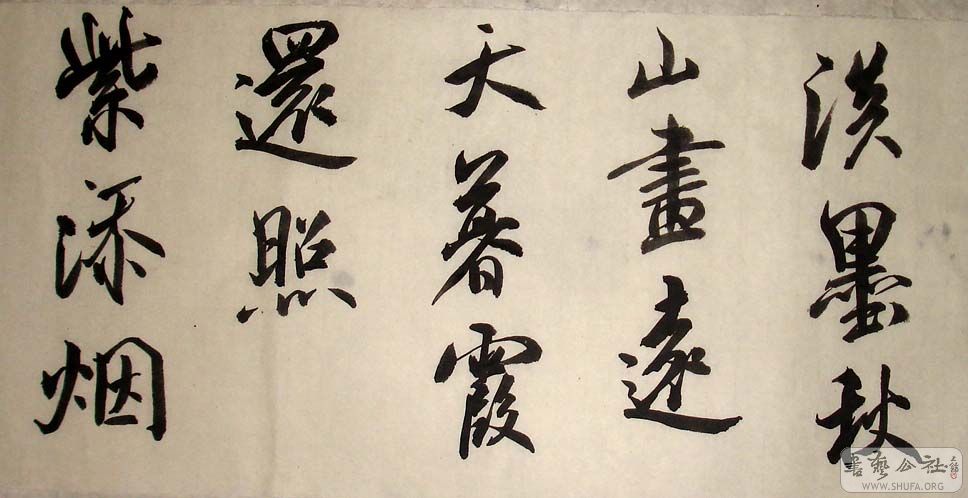 淡墨秋
山畫遠
天暮霞
還照
紫添烟
書藝公社
WWW.SHUFA.ORG